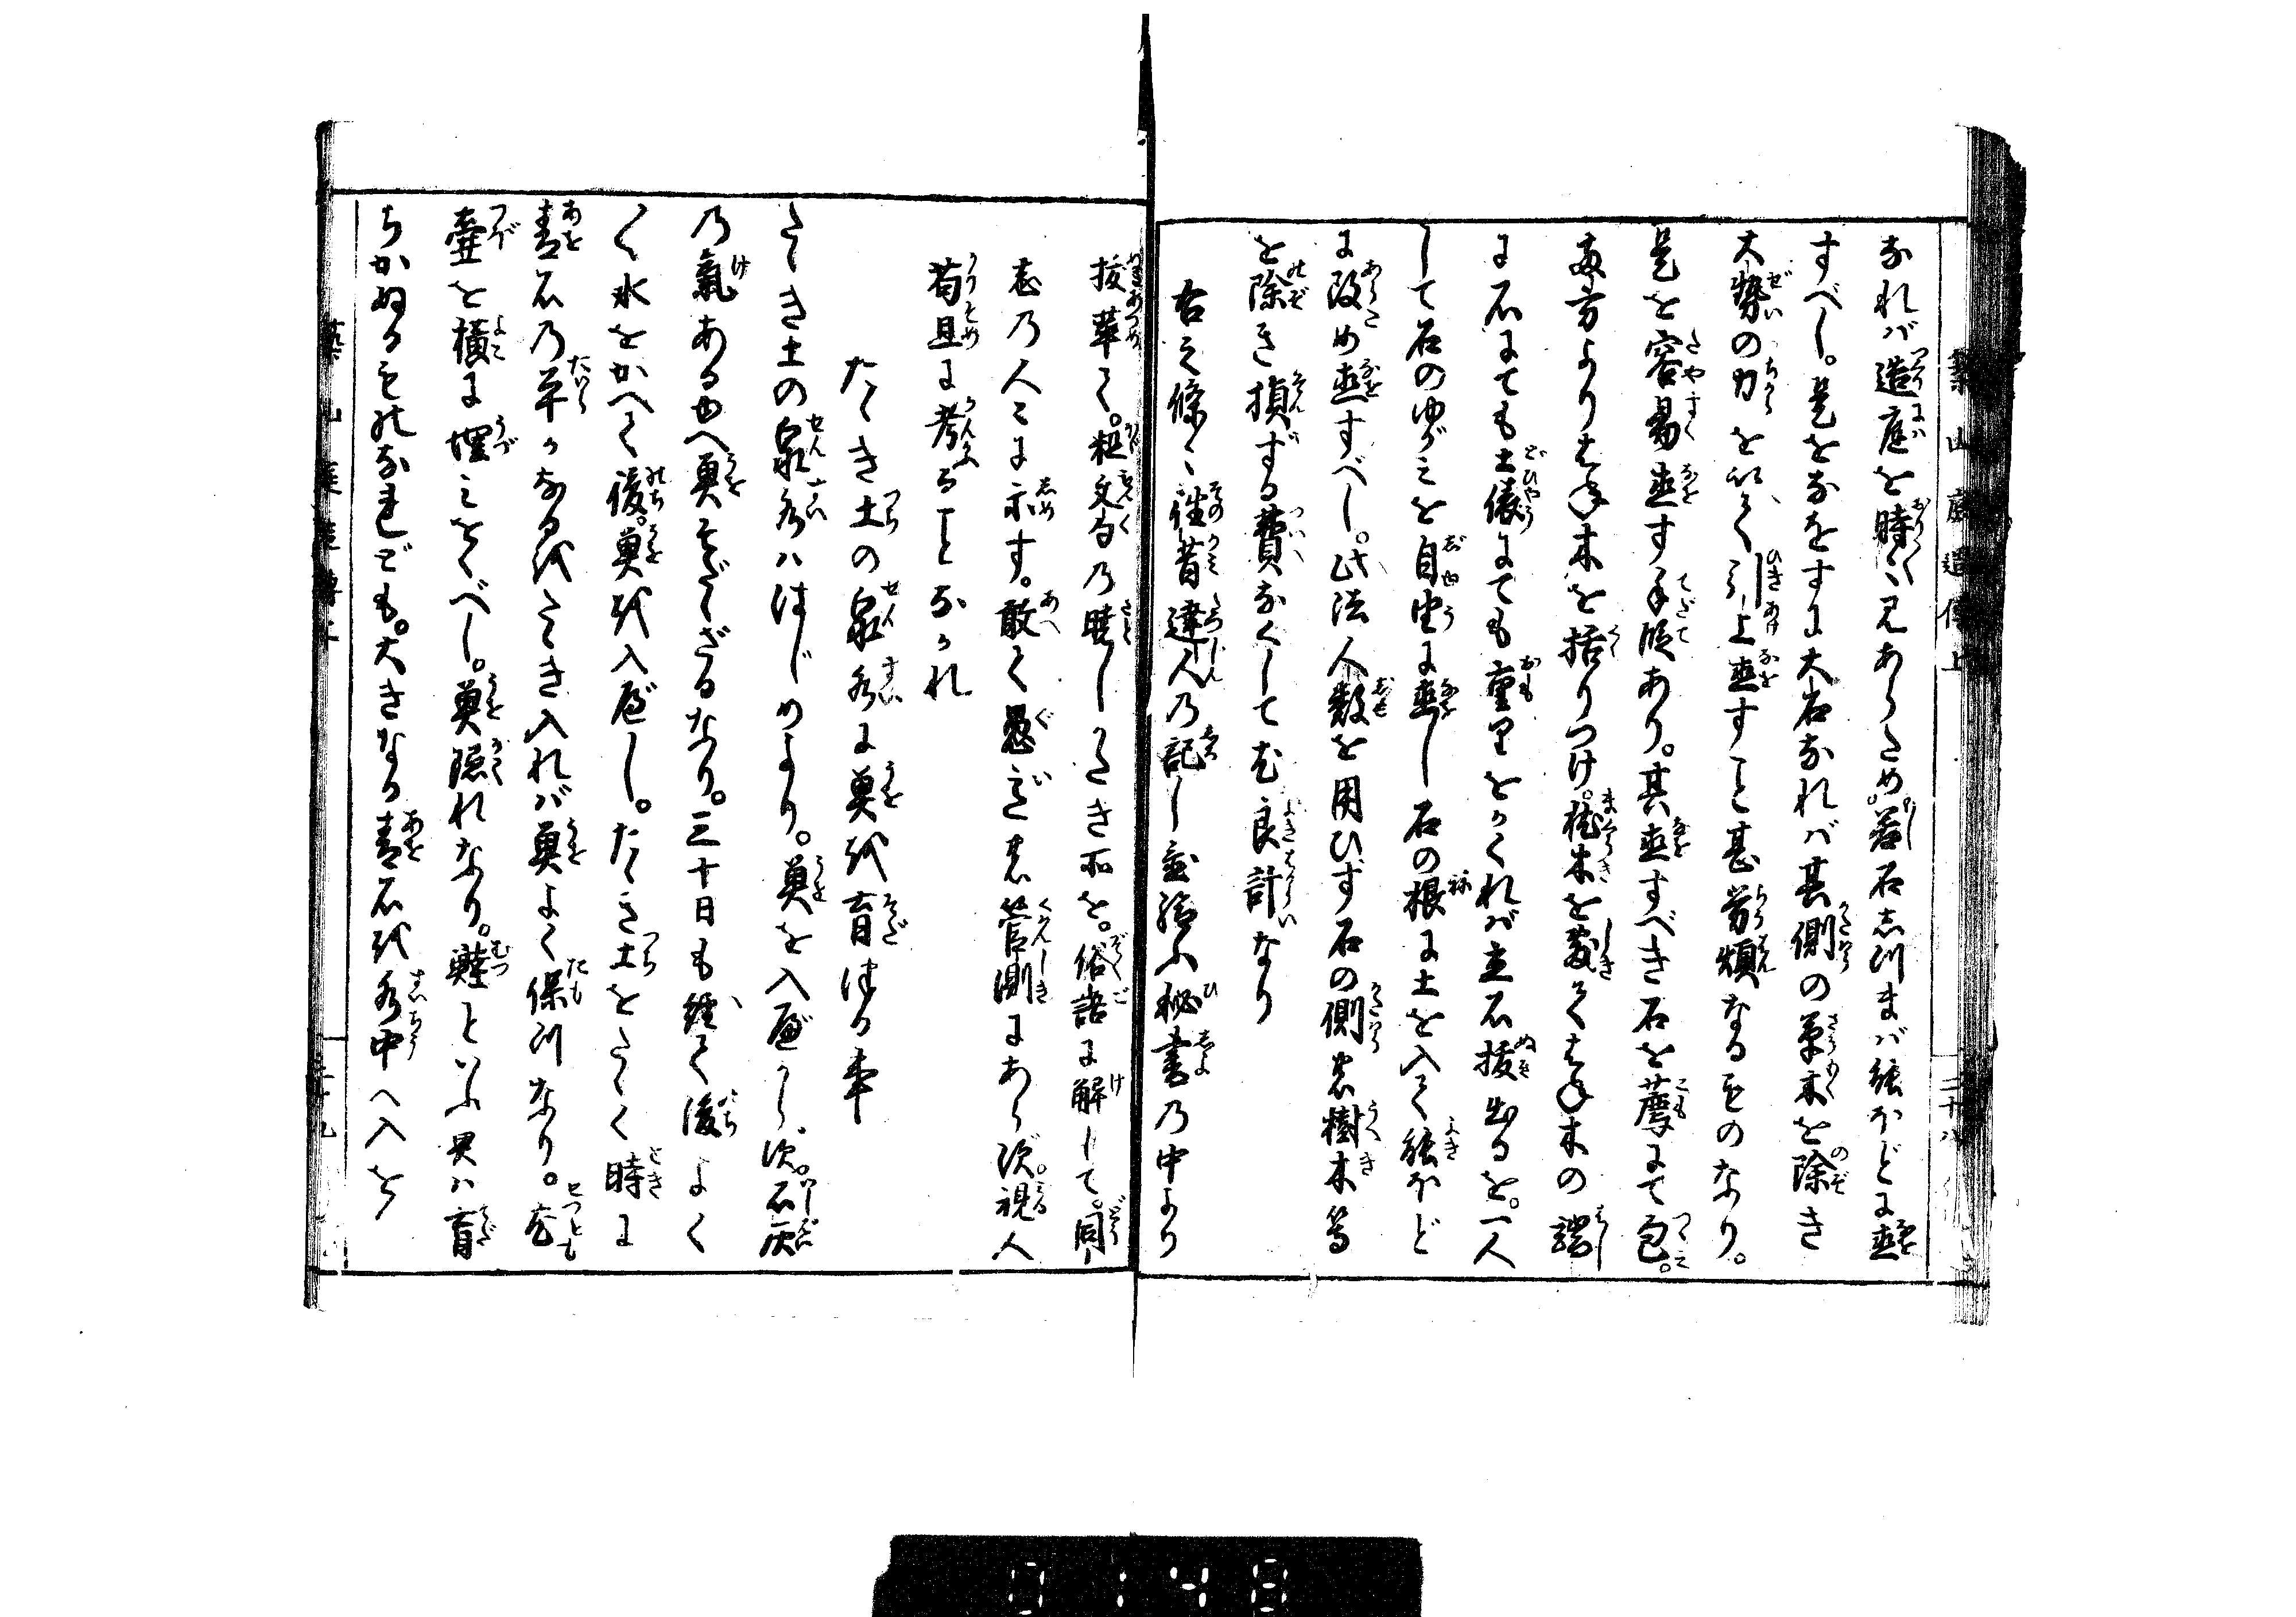 築山庭造傳上
二十八
なれバ造庭を時〻見あらため。若石しづまバ能ほどに直
すべし。是をなをすに大石なれバ其側の草木を除き
大勢の力を以て引上直すこと甚労煩なるものなり。
是を容易直す手段あり。其直すべき石を薦にて包。
両方よりはね木を括りつけ。枕木を敷てはね木の端
に石にても土俵にても重りをかくれバ立石抜出るを。一人
して石のゆがミを自由に直し石の根に土を入て能ほど
に改め直すべし。此法人数を用ひず石の側の樹木等
を除き損ずる費なくして尤良計なり
右之條〻往昔達人の記し置給ふ秘書の中より
抜萃て。粗文句の暁しがたき所を。俗語に解して。同
志の人〻に示す。敢て愚がごとき管測にあらず。視人
苟且に考ることなかれ
たゝき土の泉水に魚を育つる事
たゝき土の泉水ハはじめより。魚を入べからず。石灰
の氣あるゆへ魚そだゝざるなり。三十日も経て後よく
く水をかへて後。魚を入べし。たゝき土をたゝく時に
青石の平らなるをたゝき入れバ魚よく保つなり。尤
壷を横に埋ミをくべし。魚隠れなり。鯥といふ魚ハ育
ちかぬるものなれども。大きなる青石を水中へ入をけ
築山庭造傳上
二十九